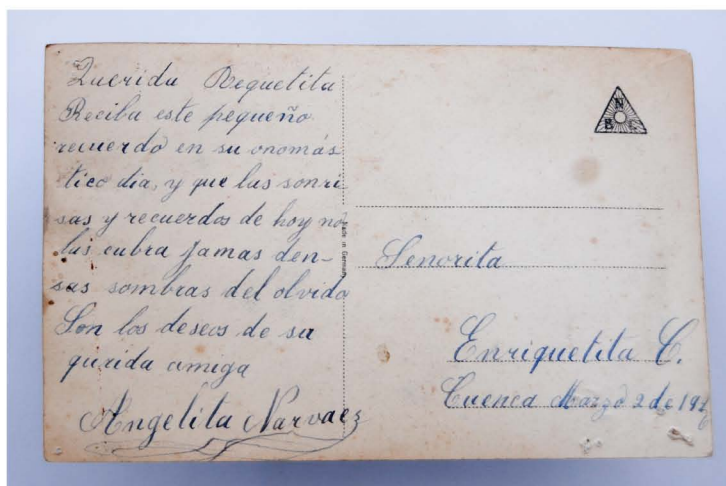 Querida Requetita
Reciba este pequeño
recuerdo en su onomás
tico dia, y que las sonri
sas y recuerdos de hoy no
las cubra jamas den-
sas sombras del olvido
Son los deseos de su
qurida amiga
Angelita Narvaez
Made in Germany
N
B C
Senorita
Enriquetita C.
Cuenca Marzo 2 de